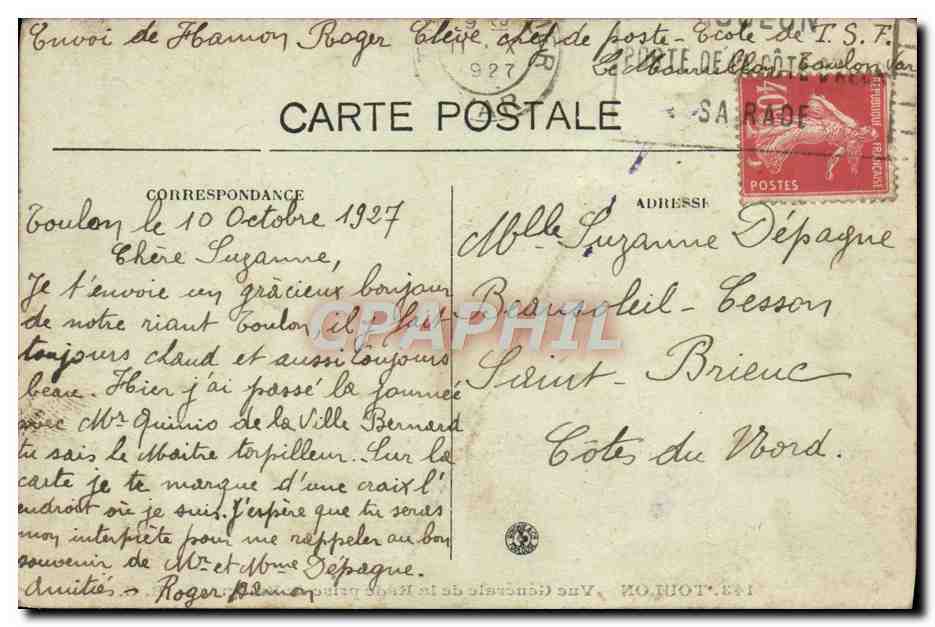 Envoi de Hamon Roger Elève chef de poste - Ecole de T.S.F.
Le Mourillon Toulon Var
TOULON
PORTE DE LA CÔTE D'AZUR
SA RADE
927
VAR
40 c
REPUBLIQUE FRANÇAISE
POSTES
CARTE POSTALE
CORRESPONDANCE
ADRESSE
Toulon le 10 Octobre 1927
Chère Suzanne,
Je t'envoie un grâcieux bonjour
de notre riant Toulon, il y fait
toujours chaud et aussi toujours
beau. Hier j'ai passé la journée
avec Mr Quinio de la Ville Bernard
tu sais le Maitre torpilleur. Sur la
carte je te marque d'une craix l'
endroit où je suis. J'espère que tu seras
mon interprète pour me rappeler au bon
souvenir de Mr et Mme Dépagne.
Amitiés - Roger Hamon
Mlle Suzanne Dépagne
Beausoleil - Cesson
Saint - Brieuc
Côtes du Nord.
CPAPHIL
143. TOULON - Vue Générale de la Rade prise